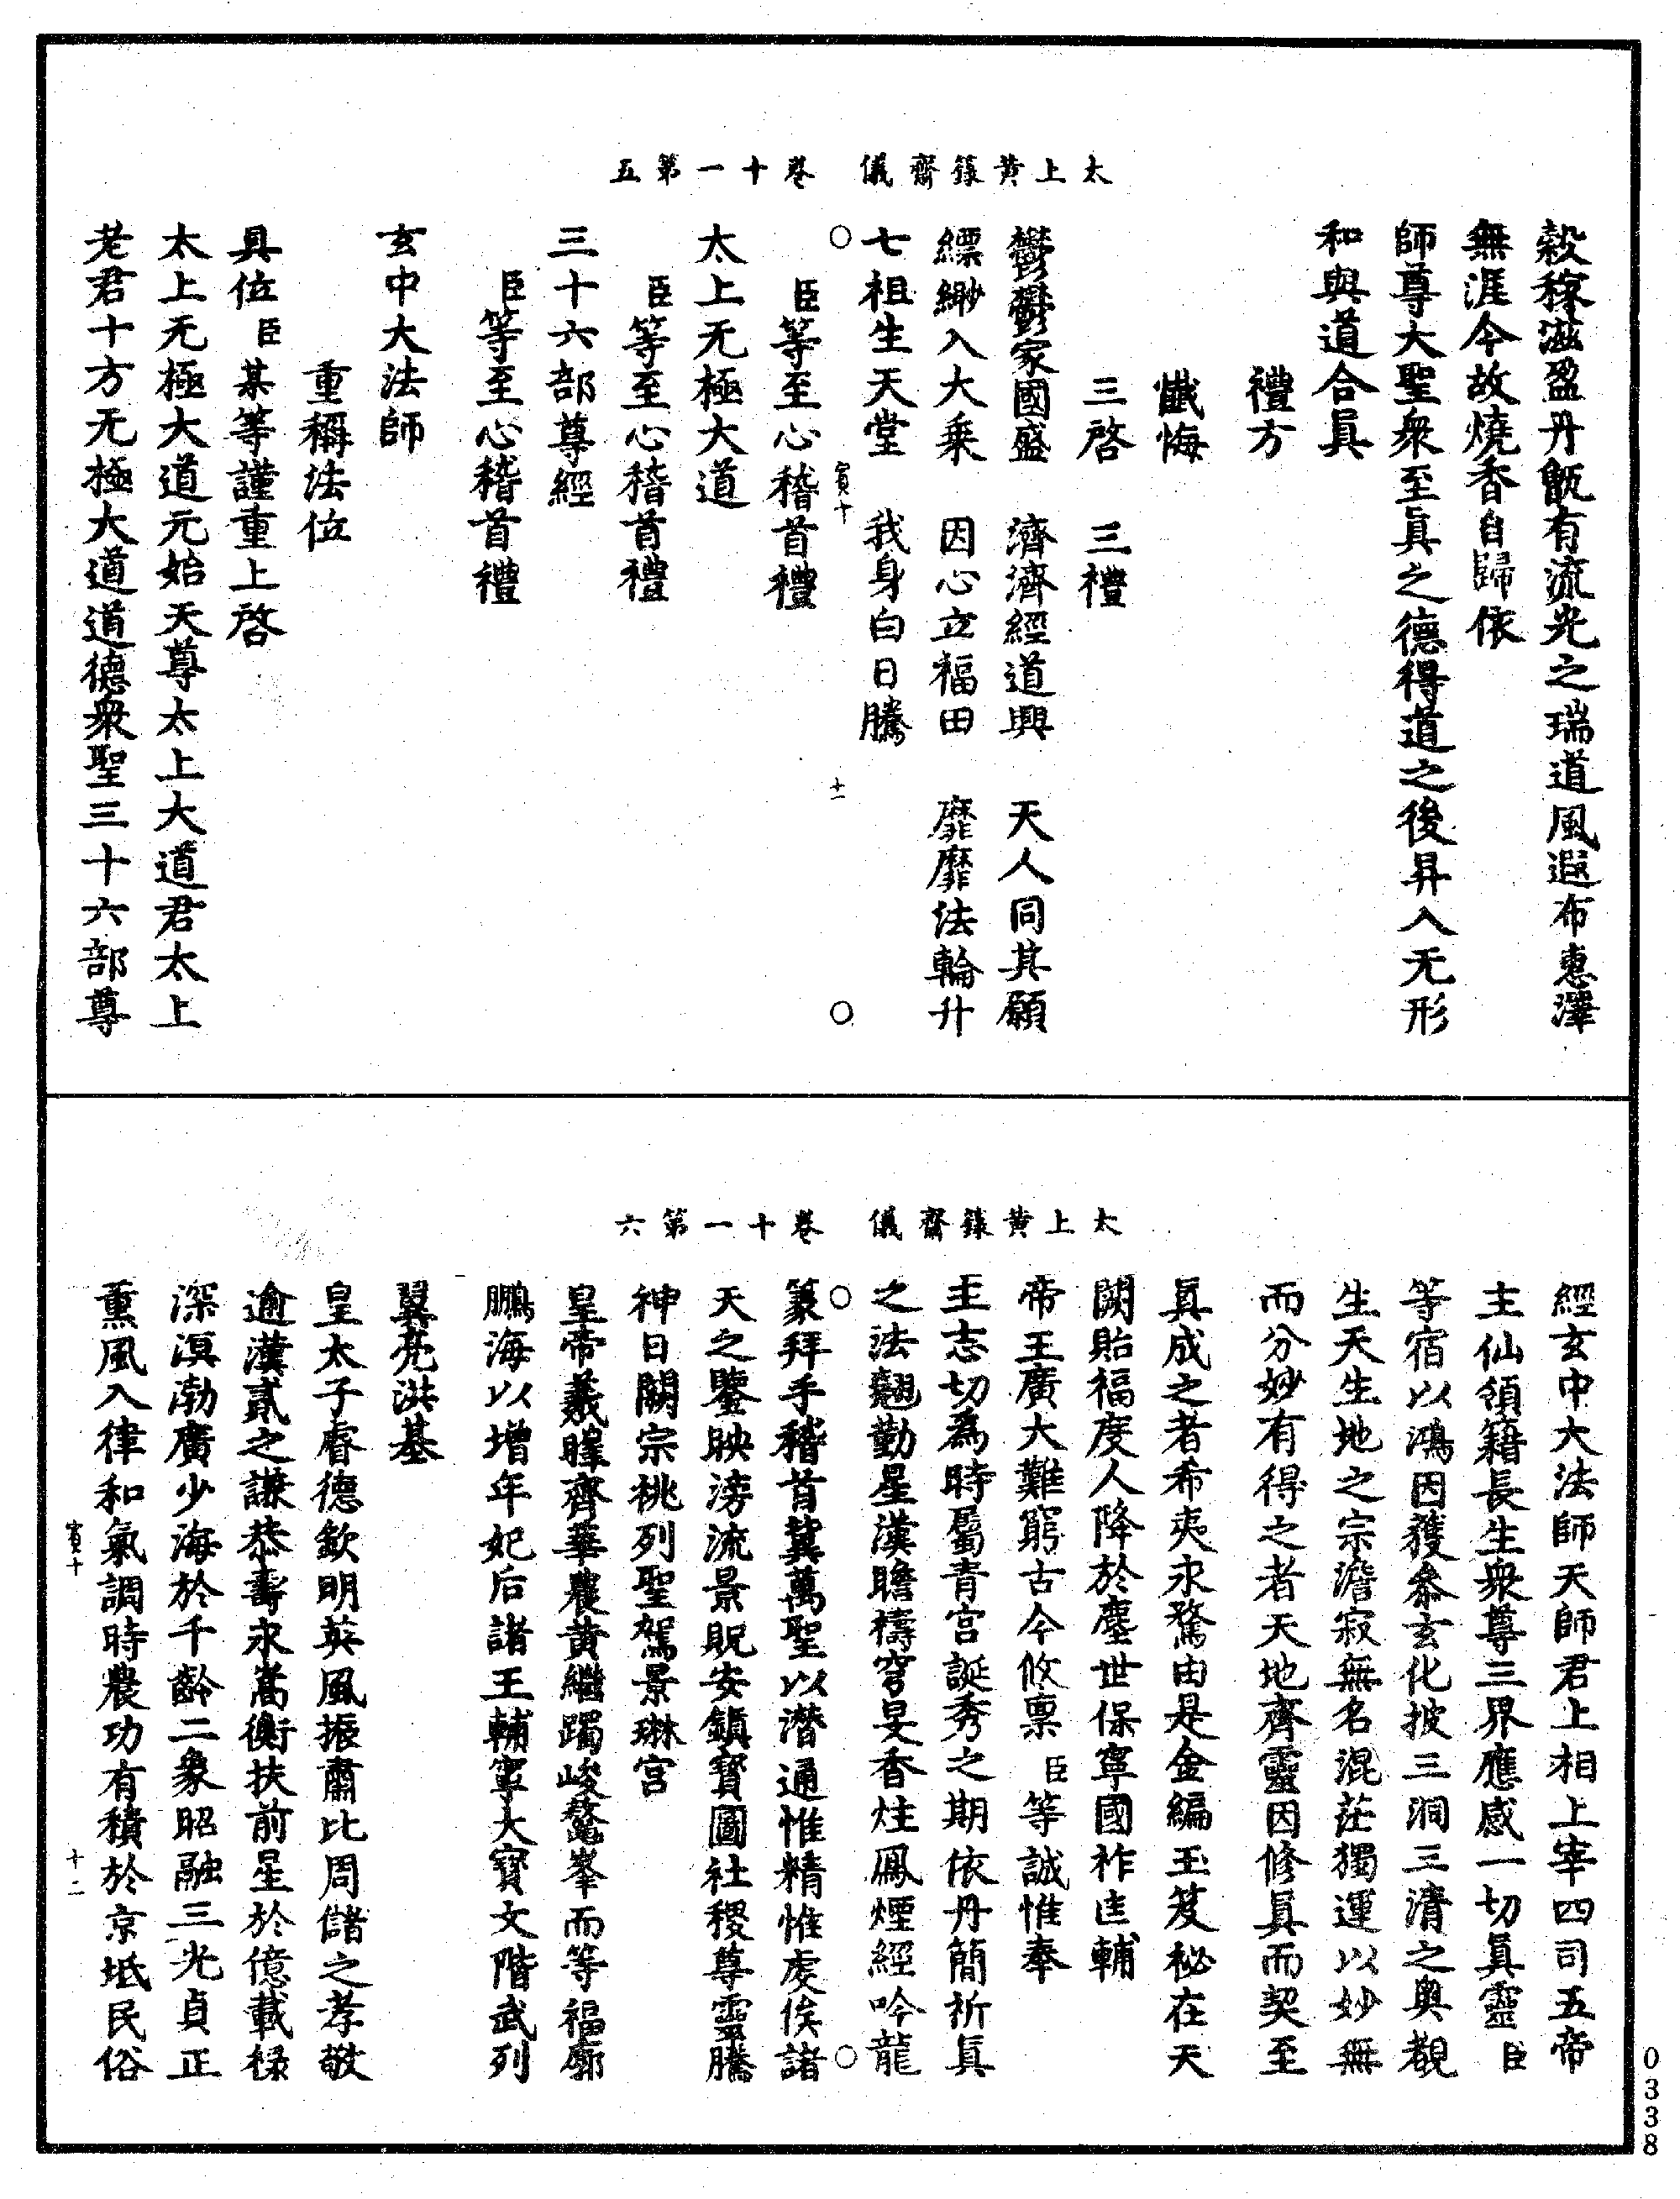 太上黃籙齋儀　卷十一第五
穀稼滋盈丹甑有流光之瑞道風遐布惠澤
無涯今故燒香自歸依
師尊大聖衆至眞之德得道之後昇入无形
和與道合眞
禮方
懺悔
三啓　三禮
鬱鬱家國盛　濟濟經道興　天人同其願
縹緲入大乘　因心立福田　靡靡法輪升
七祖生天堂　我身白日騰
賓十　十一
臣等至心稽首禮
太上无極大道
臣等至心稽首禮
三十六部尊經
臣等至心稽首禮
玄中大法師
重稱法位
具位臣某等謹重上啓
太上无極大道元始天尊太上大道君太上
老君十方无極大道道德衆聖三十六部尊
太上黃籙齋儀　卷十一第六
經玄中大法師天師君上相上宰四司五帝
主仙領籍長生衆尊三界應感一切眞靈臣
等宿以鴻因獲叅玄化披三洞三清之奥觀
生天生地之宗澹寂無名混茫獨運以妙無
而分妙有得之者天地齊靈因修眞而契至
眞成之者希夷永騖由是金編玉笈秘在天
闕貽福度人降於塵世保寧國祚匡輔
帝王廣大難窮古今攸禀臣等誠惟奉
主志切為時屬青宮誕秀之期依丹簡祈眞
之法翹勤星漢瞻禱穹旻香炷鳳煙經吟龍
篆拜手稽首冀萬聖以潛通惟精惟虔俟諸
天之鑒映滂流景貺安鎭寳圖社稷尊靈騰
神日闕宗祧列聖駕景琳宮
皇帝羲暉齊華農黃繼躅峻鼇峯而等福廓
鵬海以增年妃后諸王輔寧大寳文階武列
翼亮洪基
皇太子睿德欽明英風振肅比周儲之孝敬
逾漢貳之謙恭壽永嵩衡扶前星於億載祿
深溟渤廣少海於千齡二象昭融三光貞正
薰風入律和氣調時農功有積於京坻民俗
賓十　十二
0338